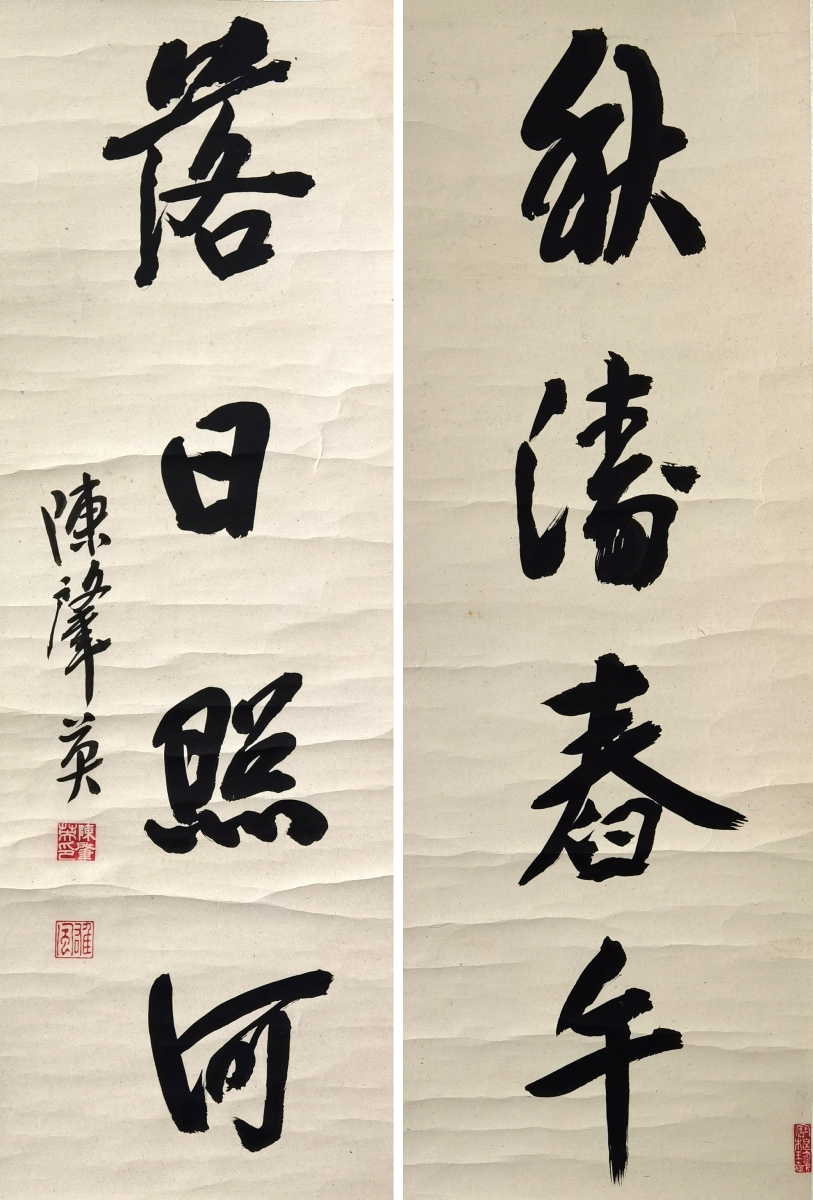 秋濤舂午
落日照河
陳肇英
陳肇英印